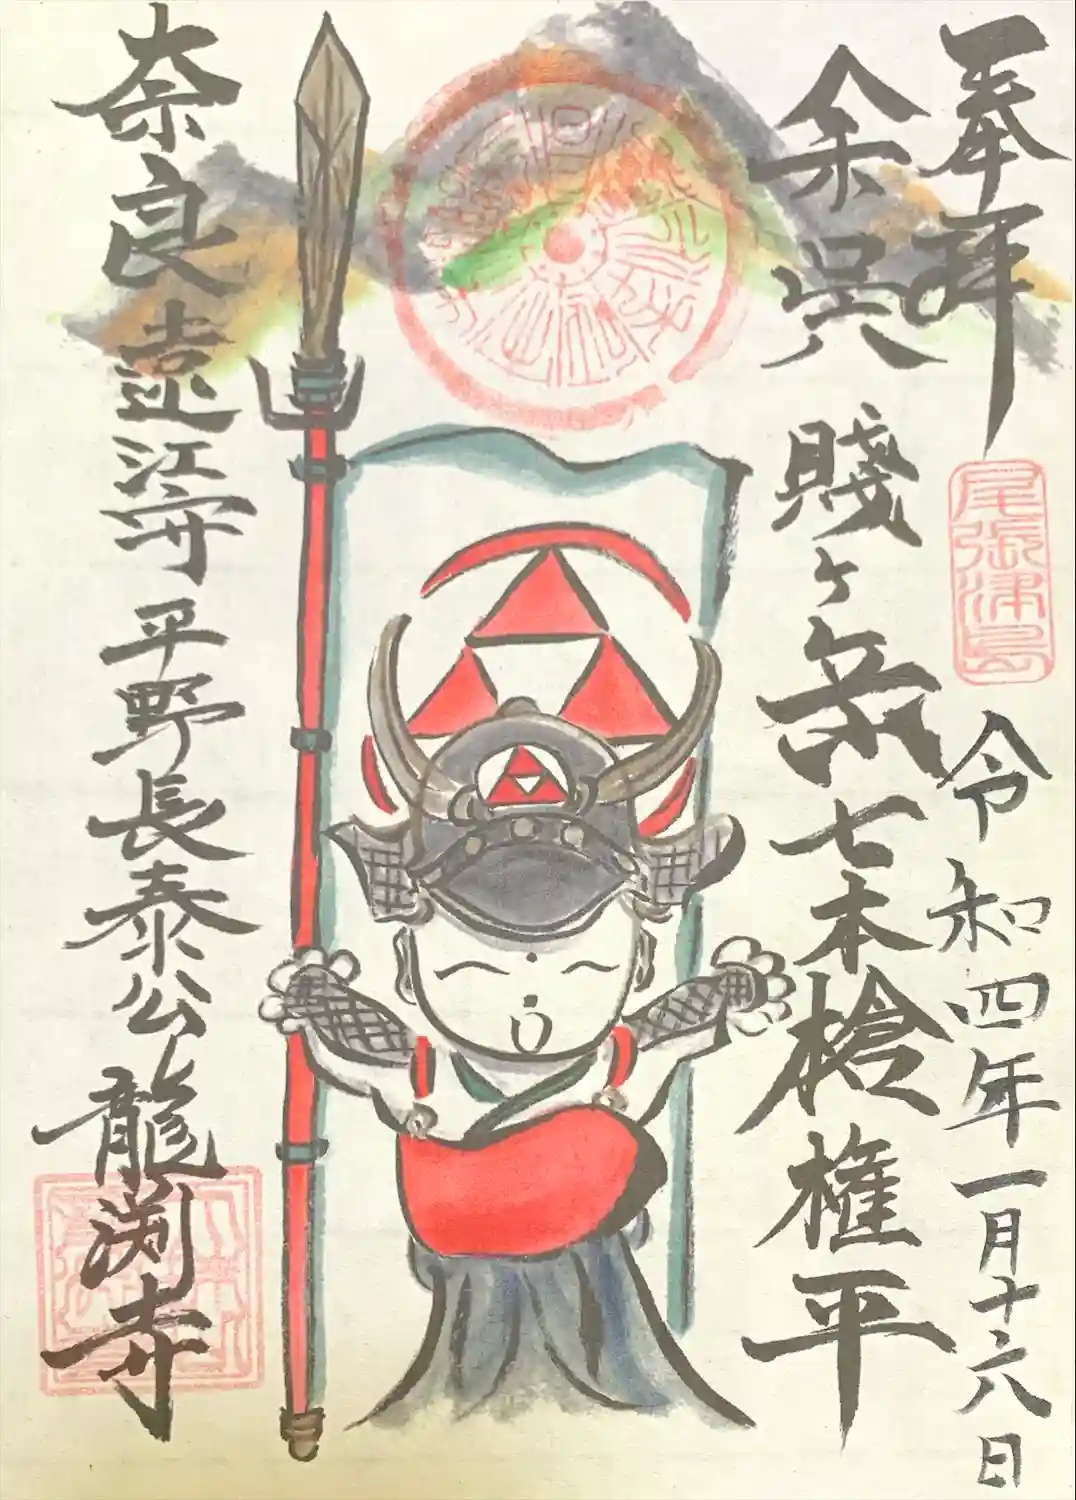 奉拝
尾張津島
令和四年一月十六日
余呉
賤ヶ岳七本槍権平
奈良
遠江守平野長泰公
龍渕寺